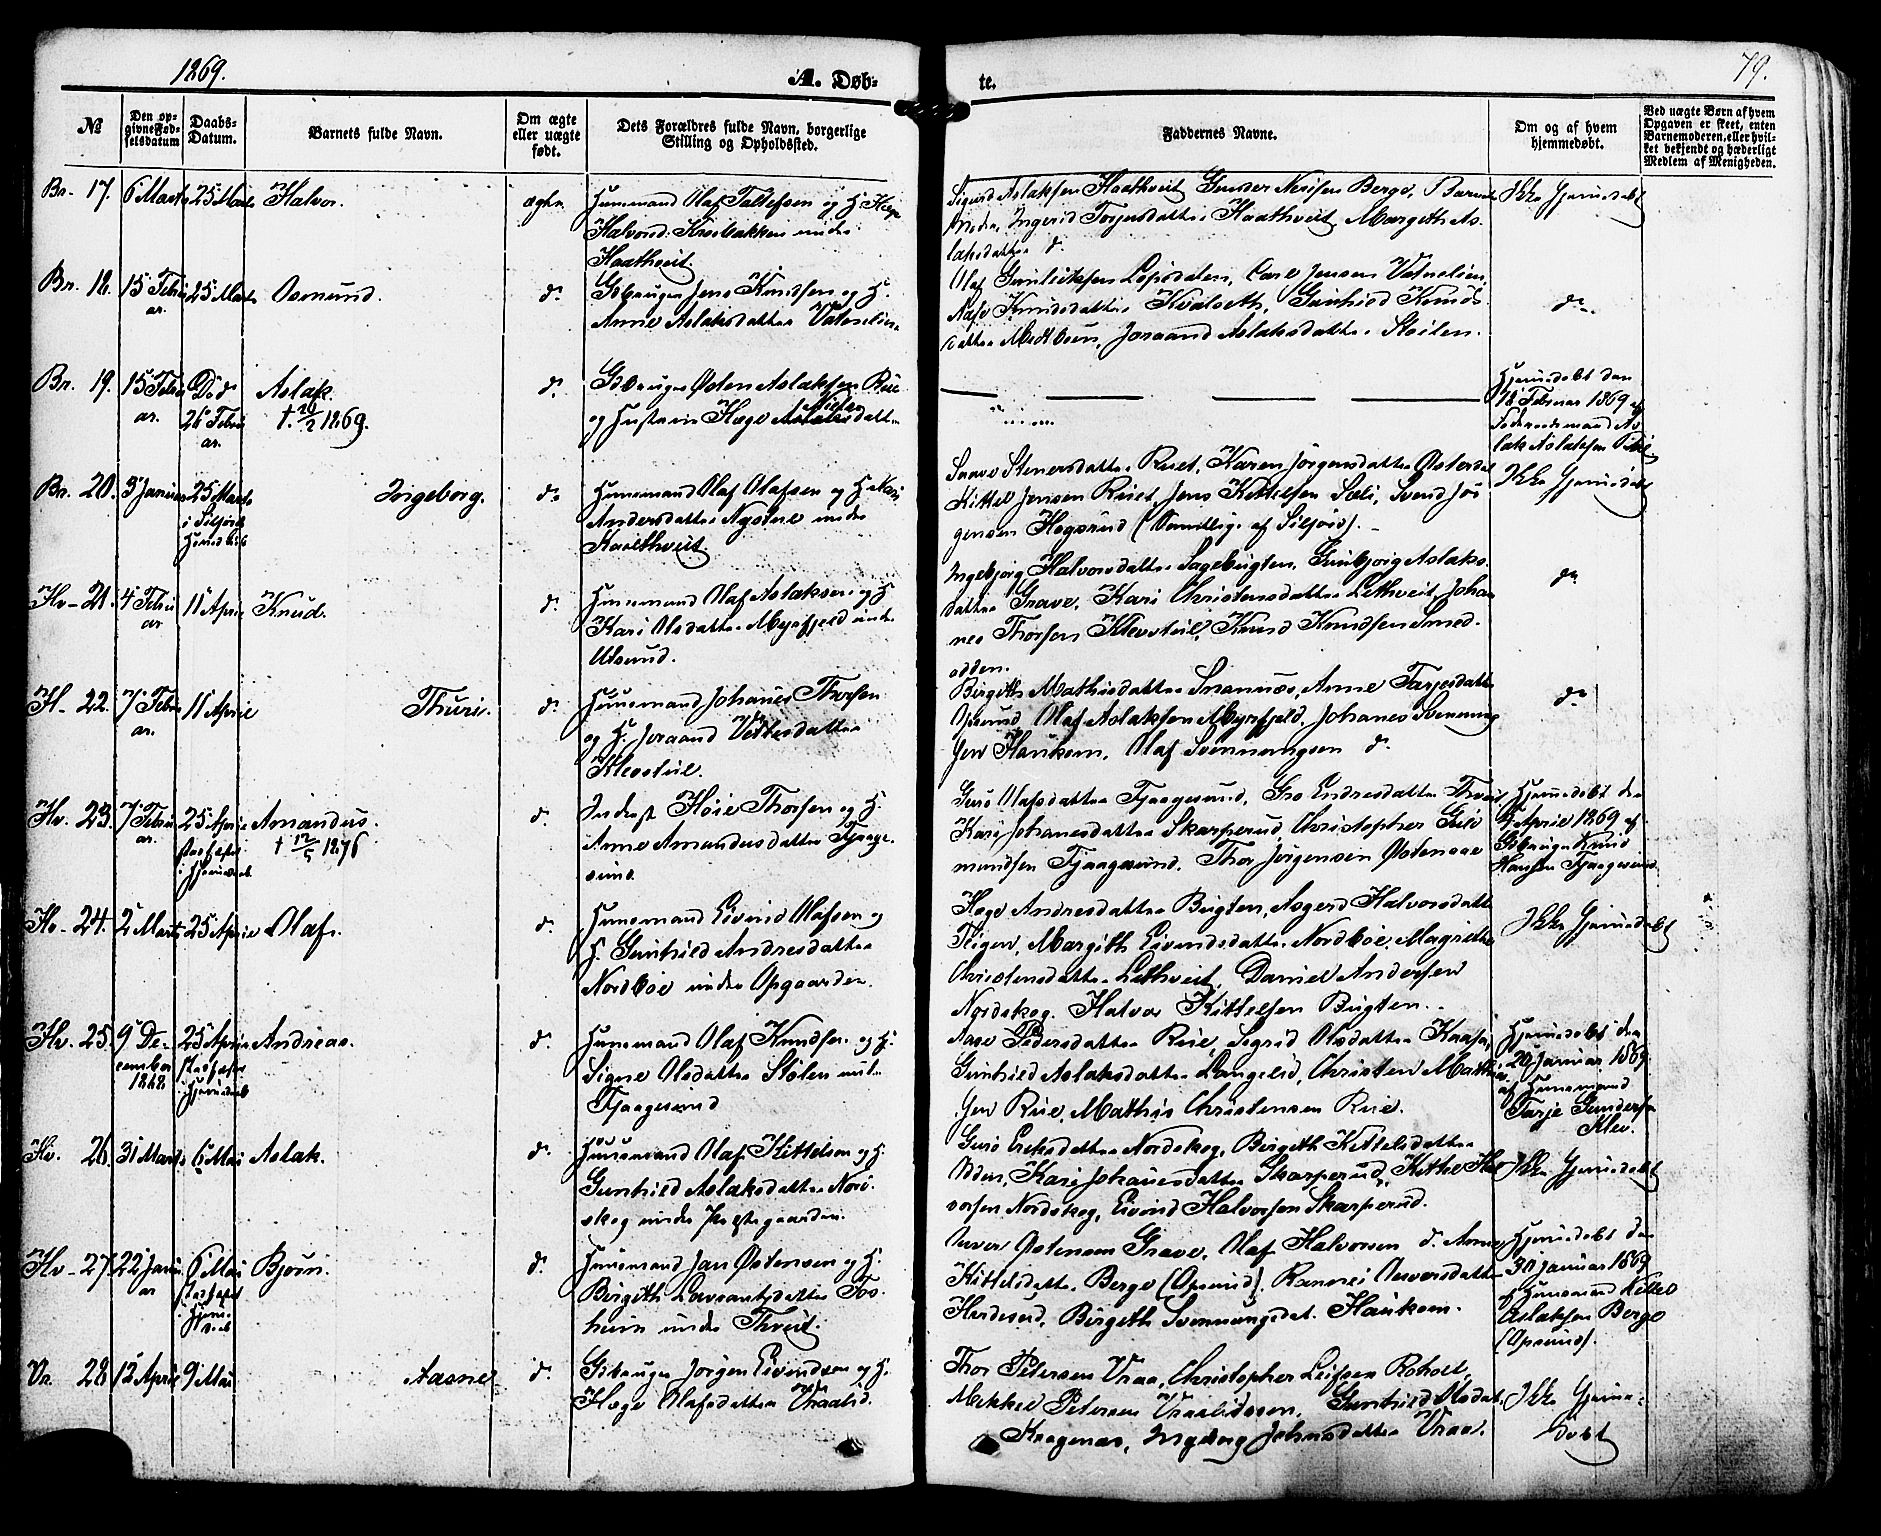 1869.
A. Døb-
te.
79.
№
Den op-
givne Fød-
selsdatum
Daabs-
Datum.
Barnets fulde Navn.
Om ægte
eller uægte
født.
Dets Forældres fulde Navn, borgerlige
Stilling og Opholdssted.
Faddernes Navne.
Om og af hvem
hjemmedøbt.
Ved uægte Børn af hvem
Opgaven er skeet, enten
Barnemoderen, eller hvil-
ket bekjendt og hæderligt
Medlem af Menigheden.
Br. 17. 6 Marts 25 Marts Halvor. ægte
Huusmand Olaf Tallefsen og H. Hæge
Halvorsd: Krosbakken under
Haathveit.
Sigurd Aslaksen Haathveit Gunder Berge, Barnets
Moder, Ingerid Torjersdatter Haathveit, Margith As-
laksdatter d.
Ikke hjemmedøbt
Br. 18. 15 Febru
ar. 25 Marts Osmund. d.
Gdbruger Jens Knudsen og H.
Anne Aslaksdatter Vatnelien
Olaf Gunleiksen Carl Jensen Vatnelien,
Knudsdatter Kvalseth, Gunhild Knuds-
datter Midtbøen, Joraand Aslaksdatter Støilen.
do.
Br. 19. 15 Febru
ar. Død
26 Febru
ar. Aslak.
† 26/2 1869. d.
Gdbruger Østen Aslaksen Rue
og Hustru Hæge datter
Hjemmedøbt den
18 Februar 1869 af
mand As-
lak Aslaksen
Br. 20. 3 Januar 25 Marts
i Siljord
Hovedkirk Ingeborg. do
Huusmand Olaf Olafsen og H. Kari
Andersdatter Nystue under
Haathveit
Saave Stenersdatter Ruet, Karen Jörgensdatter Østerdal
Kittel Jensen Ruet, Jens Kittilsen Sæli, Svend Jör-
gensen Hogsrud (Samtlige af Siljord).
Ikke hjemmedøbt
Hv. 21. 4 Febru
ar 11 April Knud. d.
Huusmand Olaf Aslaksen og H.
Kari Olsdatter Myrfjeld under
Utsund.
Ingebjørg Halvorsdatter Sagebugten, Gunbjørg Aslaks-
datter Grave, Kari Christensdatter Lethveit, Johan
nes Thorsen Klevstul, Knud Knudsen Smed-
odden.
do
H. 22. 7 Febru
ar. 11 April Thuri. d.
Huusmand Johanes Thorsen
og H. Joraand Vetlesdatter
Klevstul.
Birgith Mathisdatter Snarnæs, Anne Tarjesdatter
Opsund, Olaf Aslaksen Myrfjeld, Johanes Svennung
sen Haukom, Olaf Svennungsen d.
do
Hv. 23. 7 Febru
ar. 25 April
stadfæstet
i hjemmedaab Amandus.
† 12/5 1876 d.
Inderst Høie Thorsen og H.
Anne Amundsdatter Fjaage-
sund.
Guro Olafsdatter Fjaagesund, Gro Endresdatter Thveit
Kari Johanesdatter Skarperud, Christopher Gul-
mundsen Fjaagesund, Thor Jørgensen Østenaae
Hjemmedøbt den
April 1869 af
Gdbruger Knud
Hansen Fjaagesund.
Hv. 24. 2 Marts 25 April Olaf. d.
Huusmand Eivind Olafsen og
H. Gunhild Andresdatter
Nordbøe under Opgaarden.
Hæge Andresdatter Bugten, Asgerd Halvorsdatter
Teigen, Margith Eivindsdatter Nordbøe, Magrethe
Christensdatter Lethveit, Daniel Andersen
Nordskog, Halvor Kittelsen Bugten.
Ikke hjemmedøbt
Hv. 25. 9 De-
cember
1868 25 April
stadfæstet
i hjemmedaab Andreas. d.
Huusmand Olaf Knudsen og H.
Signe Olsdatter Stølen under
Fjaagesund
Aase Pedersdatter Rue, Sigrid Olsdatter Kaasa,
Gunhild Aslaksdatter Langelid, Christen Mathi-
sen Rue, Mathis Christensen Rue.
Hjemmedøbt den
20 Januar 1869
af Huusmand
Tarje Gundersen
Klev.
Hv. 26. 31 Marts 6 Mai Aslak. d.
Huusmand Olaf Kittelsen og H.
Gunhild Aslaksdatter Nord-
skog under Præstegaarden.
Guro Eriksdatter Nordskog, Birgith Kittelsdatter
Odden, Kari Johanesdatter Skarperud, Kittel Hal-
vorsen Nordskog, Eivind Halvorsen Skarperud.
Ikke hjemmedøbt
Hv. 27. 22 Janu
ar 6 Mai
stadfæstet
hjem-
daab Bjørn. d.
Huusmand Jan Østensen og H.
Birgith Lavrantsdatter Fos-
heim under Thveit.
Østensen Grave, Olaf Halvorsen d. Anne
Kittelsdatter Berge (Opsund). Rannei datter
Birgith Svennungsdat. Haukom.
Hjemmedøbt den
30 Januar 1869
af Huusmand Kittel
Aslaksen Berge
(Opsund).
Vr. 28 12 April 9 Mai Aasne d.
Gdbruger Jörgen Eivindsen og H.
Hæge Olafsdatter Vraalid.
Thor Petersen Vraa, Christopher Leifsen Roholt,
Mikkel Petersen Vraaliosen, Gunhild Olsdat.
Kragenæs, Ingeborg Johnsdatter Vraa.
Ikke hjemme-
døbt